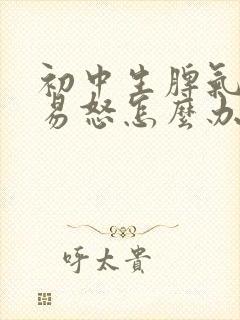 初中生脾氣
易怒怎麼办
呼太貴